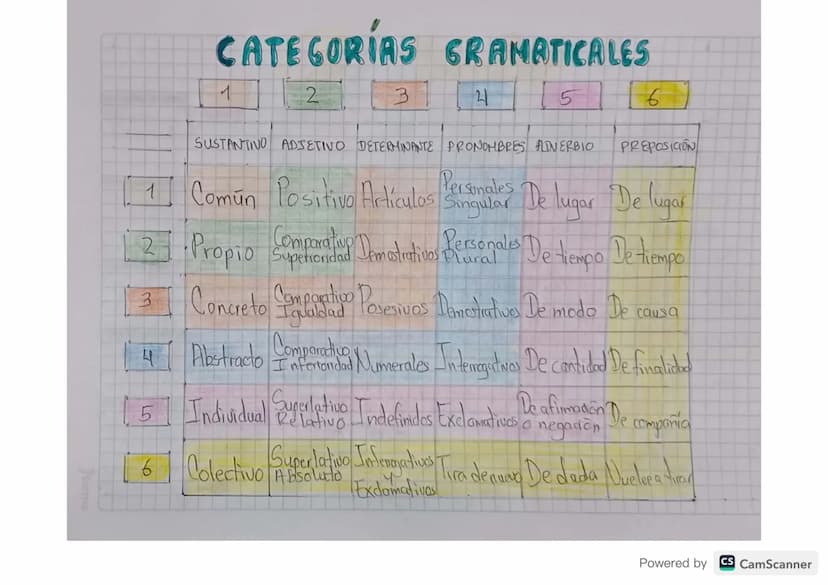 CATEGORÍAS GRAMATICALES
1 2 3 4 5 6
SUSTANTIVO ADJETIVO DETERMINANTE PRONOMBRES ADVERBIO PREPOSICIÓN
1 Común Positivo Artículos Personales Singular De lugar De lugar
2 Propio Comparativo Superioridad Demostrativos Personales Plural De tiempo De tiempo
3 Concreto Comparativo Igualdad Posesivos Demostrativos De modo De causa
4 Abstracto Comparativo Inferioridad Numerales Interrogativos De cantidad De finalidad
5 Individual Superlativo Relativo Indefinidos Exclamativos De afirmación o negación De compañía
6 Colectivo Superlativo Absoluto Interrogativos y Exclamativos Tira de nuevo De dada Vuelve a tirar
Powered by CS CamScanner